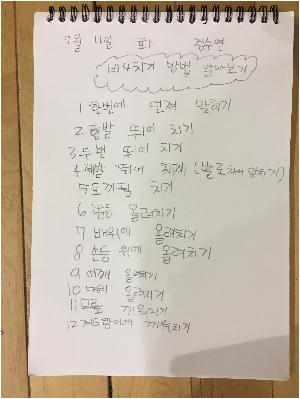 9월 11일 화 정수연
비석치기 방법 알아보기
1 한번에 던져 맞히기
2 한발 뛰어 치기
3 두번 뛰어 치기
4 세발 뛰어 치기 (발로차서 맞히기)
5 도끼찍 치기
6 발등 올려치기
7 배위에 올려치기
8 손등 위에 올려치기
9 어깨 올려치기
10 머리 올려치기
11 무릎 끼워치기
12 겨드랑이에 끼워치기